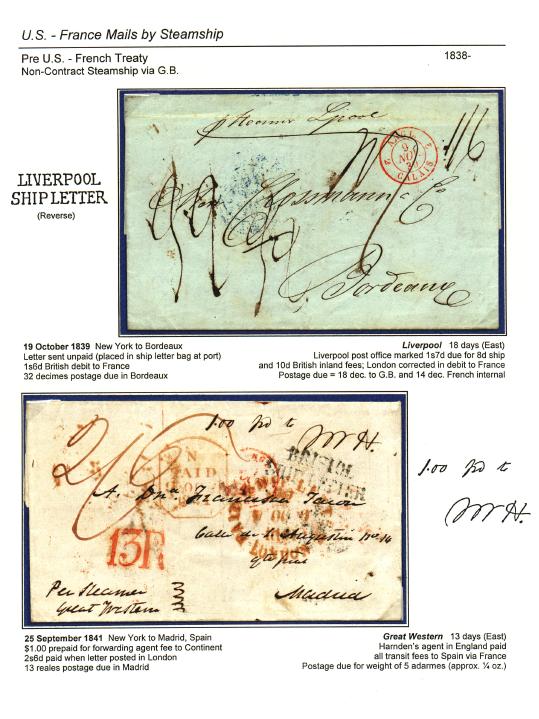 U.S. - France Mails by Steamship
Pre U.S. - French Treaty
1838-
Non-Contract Steamship via G.B.
p Steamer Lpool
1/6
ANGL.
2 2
9
NOV
39
CALAIS
LIVERPOOL
SHIP LETTER
(Reverse)
& Co
Bordeaux
19 October 1839 New York to Bordeaux
Letter sent unpaid (placed in ship letter bag at port)
1s6d British debit to France
32 decimes postage due in Bordeaux
Liverpool 18 days (East)
Liverpool post office marked 1s7d due for 8d ship
and 10d British inland fees; London corrected in debit to France
Postage due = 18 dec. to G.B. and 14 dec. French internal
1.00 pd to
WH.
2/6
PAID
BRISTOL
SHIP LETTER
A. Dna. Francisco
Calle de S. Augustin No. 14
LONDON
13R
Per Steamer
Great Western
Madrid
1.00 pd to
WH.
25 September 1841 New York to Madrid, Spain
$1.00 prepaid for forwarding agent fee to Continent
2s6d paid when letter posted in London
13 reales postage due in Madrid
Great Western 13 days (East)
Harnden's agent in England paid
all transit fees to Spain via France
Postage due for weight of 5 adarmes (approx. ¼ oz.)